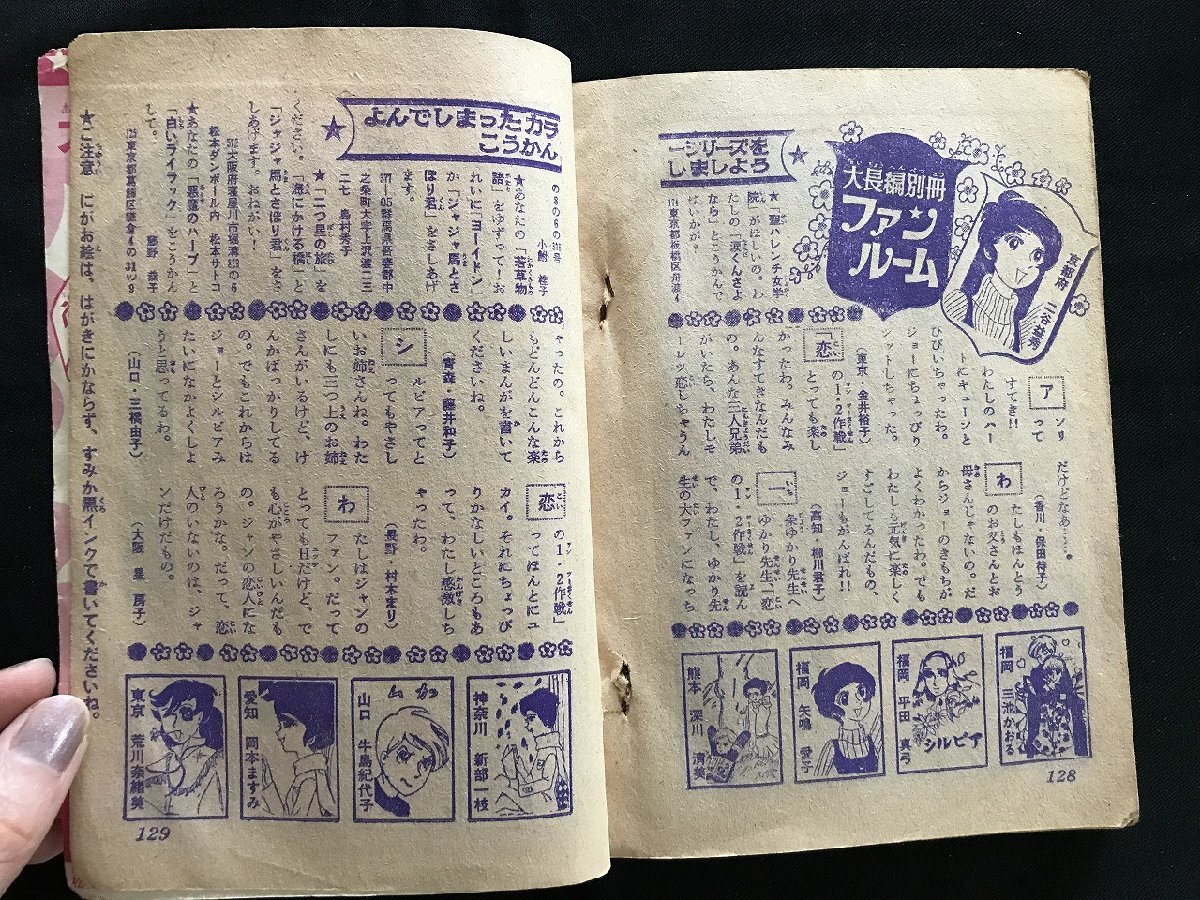 大長編別冊
ファン
ルーム
京都府
よんでしまったカラーシリーズを
こうかんしましょう
★「聖ハレンチ女学
院」がほしいの。わ
たしの「涙くんさよ
なら」とこうかんで
ないかが。
174東京都板橋区舟渡4
の8の6の
小勝 桂子
★あなたの「若草物
語」をゆずって!お
れいに「ヨーイドン」
か「ジャジャ馬とさ
ぼり君」をさしあげ
ます。
群馬県吾妻郡中
之条町大字上沢渡二三
二七 島村秀子
★「二つ星の旅」を
ください。「海にかける橋」と
「ジャジャ馬とさぼり君」をさ
しあげます。おねがい!
松本ダンボール内 松本サトコ
★あなたの「悪魔のハープ」と
「白いライラック」をこうかん
して。
藤野 恭子
アンリ
って
すてき!!
わたしのハー
トにキューンと
ひびいちゃったわ。
ジョーにちょっぴり
シットしちゃった。
(東京・金井裕子)
「恋の1・2作戦」
とっても楽し
かったわ。みんなみ
んなすてきなんだも
の。あんな三人兄弟
がいたら、わたしそ
ーレツ恋しちゃうん
だけどなあ……。
(香川・保田待子)
わたしもほんとう
のお父さんとお
母さんじゃないの。だ
からジョーのきもちが
よくわかったわ。でも
わたしも元気に楽しく
すごしてるんだもの、
ジョーもがんばれ!!
(高知・柳川君子)
一条ゆかり先生へ
ゆかり先生、恋
の1・2作戦」を読ん
で、わたし、ゆかり先
生の大ファンになっち
ゃったの。これから
もどんどんこんな楽
しいまんがを書いて
くださいね。
(青森・藤井和子)
シルビアってと
ってもやさし
いお姉さんね。わた
しにも三つ上のお姉
さんがいるけど、け
んかばっかりしてる
の。でもこれからは
ジョーとシルビアみ
たいになかよくしよ
うと思ってるわ。
(山口・三橋由子)
恋の1・2作戦」
ってほんとにユ
カイ。それにちょっぴ
りかなしいところもあ
って、わたし感激しち
ゃったわ。
(長野・村木まり)
わたしはジャンの
ファン。だって
とっても日だけど、で
も心がやさしいんだも
の。ジャンの恋人にな
ろうかな。だって、恋
人のいないのは、ジャ
ンだけだもの。
(大阪 星 房子)
福岡 三池かおる
福岡 平田 真弓
シルビア
福岡 矢鳴 愛子
熊本 深川 清美
128
神奈川 新部一枝
山口 牛島紀代子
愛知 岡本ますみ
東京 荒川奈緒美
129
★ご注意 にがお絵は、はがきにかならず、すみか黒インクで書いてくださいね。